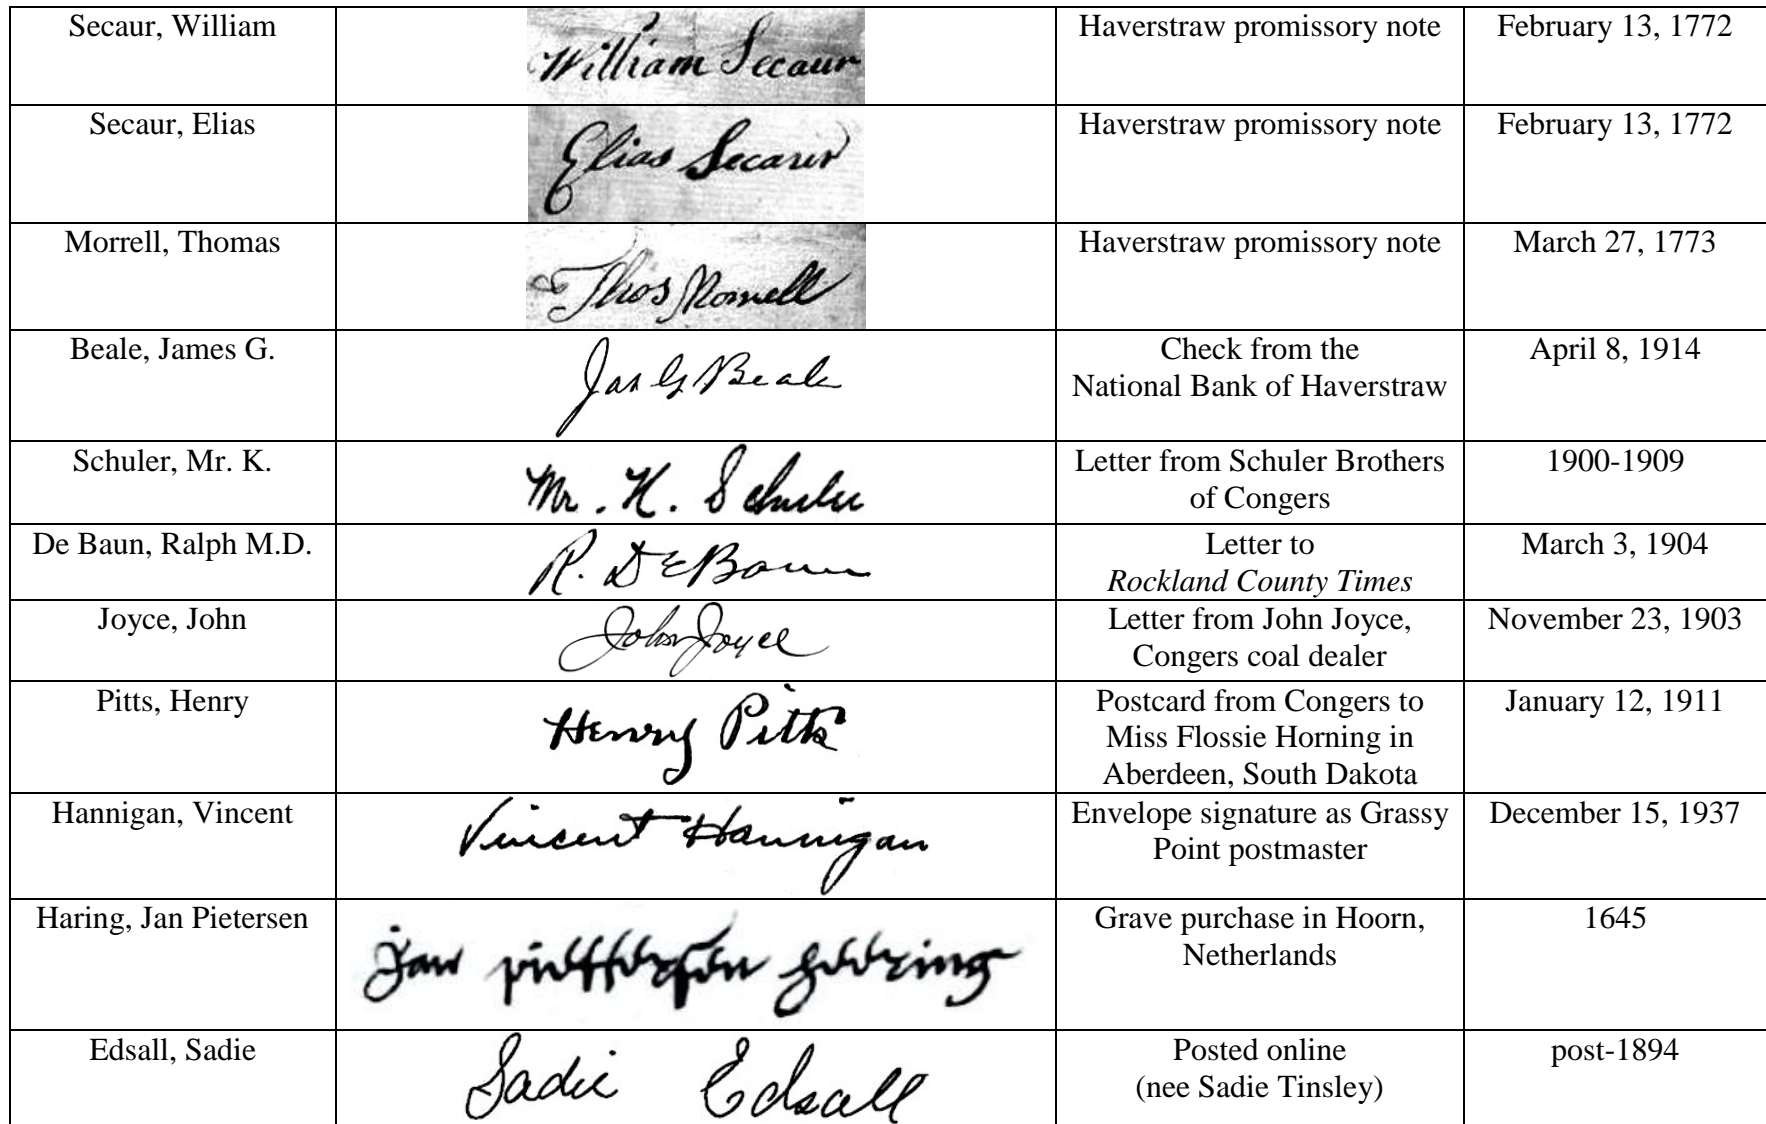 Secaur, William
William Secaur
Haverstraw promissory note
February 13, 1772
Secaur, Elias
Elias Secaur
Haverstraw promissory note
February 13, 1772
Morrell, Thomas
Thos Morrell
Haverstraw promissory note
March 27, 1773
Beale, James G.
Jas G Beale
Check from the
National Bank of Haverstraw
April 8, 1914
Schuler, Mr. K.
Mr. K. Schuler
Letter from Schuler Brothers
of Congers
1900-1909
De Baun, Ralph M.D.
R. DeBaun
Letter to
Rockland County Times
March 3, 1904
Joyce, John
John Joyce
Letter from John Joyce,
Congers coal dealer
November 23, 1903
Pitts, Henry
Henry Pitts
Postcard from Congers to
Miss Flossie Horning in
Aberdeen, South Dakota
January 12, 1911
Hannigan, Vincent
Vincent Hannigan
Envelope signature as Grassy
Point postmaster
December 15, 1937
Haring, Jan Pietersen
Jan
Grave purchase in Hoorn,
Netherlands
1645
Edsall, Sadie
Sadie Edsall
Posted online
(nee Sadie Tinsley)
post-1894